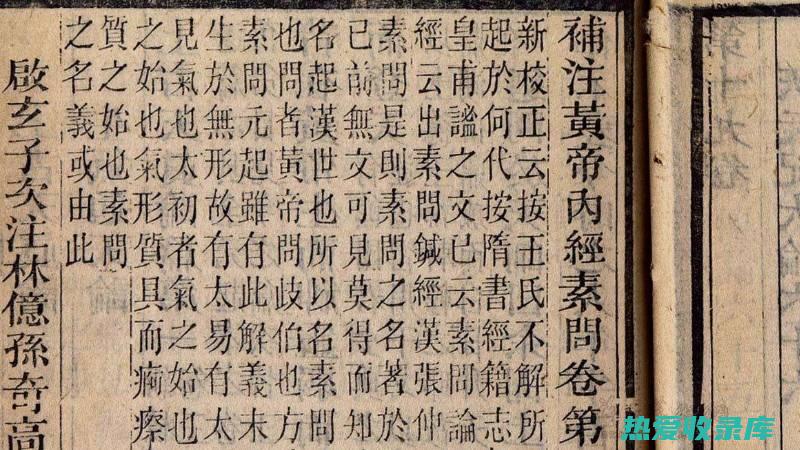 補注黃帝內經素問卷第
新校正云按王氏不解所
起於何代按隋書經籍志
皇甫謐之文已云素問論
經云出素問鍼經漢張仲
素問是則素問之名著於
已前無文可見莫得而知
名起漢世也所以名素問
也問者黃帝問歧伯也方
素問元起雖有此解義未
生於無形故有太易有太
見氣也太初者氣之始也
之始也氣形質具而痾瘵
質之始也素問
之名義或由此
啟玄子次注林億孫奇高
第十九卷
热爱收录库